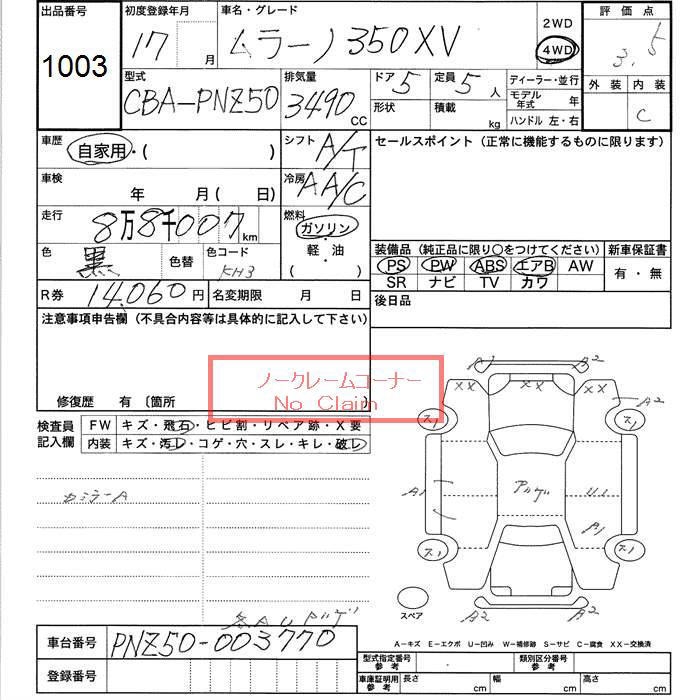 出品番号 初度登録年月 車名・グレード 2WD 評価点
1003 17 月 ムラーノ 350XV 4WD 3.5
型式 排気量 ドア 5 定員 5 人 ディーラー・並行 外装 内装
CBA-PNZ50 3490 CC 形状 積載 kg モデル年式 年 C
ハンドル 左・右
車歴 自家用・( ) シフト A/T セールスポイント(正常に機能するものに限ります)
車検 年 月( 日) 冷房 AA/C
走行 8万8千007 km 燃料 ガソリン・軽・油 ( )
色 黒 色替 色コード KH3
装備品(純正品に限り○をつけてください) 新車保証書
PS PW ABS エアB AW 有・無
SR ナビ TV カワ
R券 14,060 円 名変期限 月 日 後日品
注意事項申告欄(不具合内容等は具体的に記入して下さい)
ノークレームコーナー
No Claim
修復歴 有 〔箇所 〕
検査員記入欄 FW キズ・飛石・ヒビ割・リペア跡・X要
内装 キズ・汚レ・コゲ・穴・スレ・キレ・破レ
A2 A2
XX XX XX A2
ス1 ス1
A1 U1
A1
ス1 ス1
スペア A2 A2
A-キズ E-エクボ U-凹み W-補修跡 S-サビ C-腐食 XX-交換済
車台番号 PNZ50-003770
登録番号
型式指定番号 参考 類別区分番号 参考
車庫証明用 参考 長さ cm 幅 cm 高さ cm